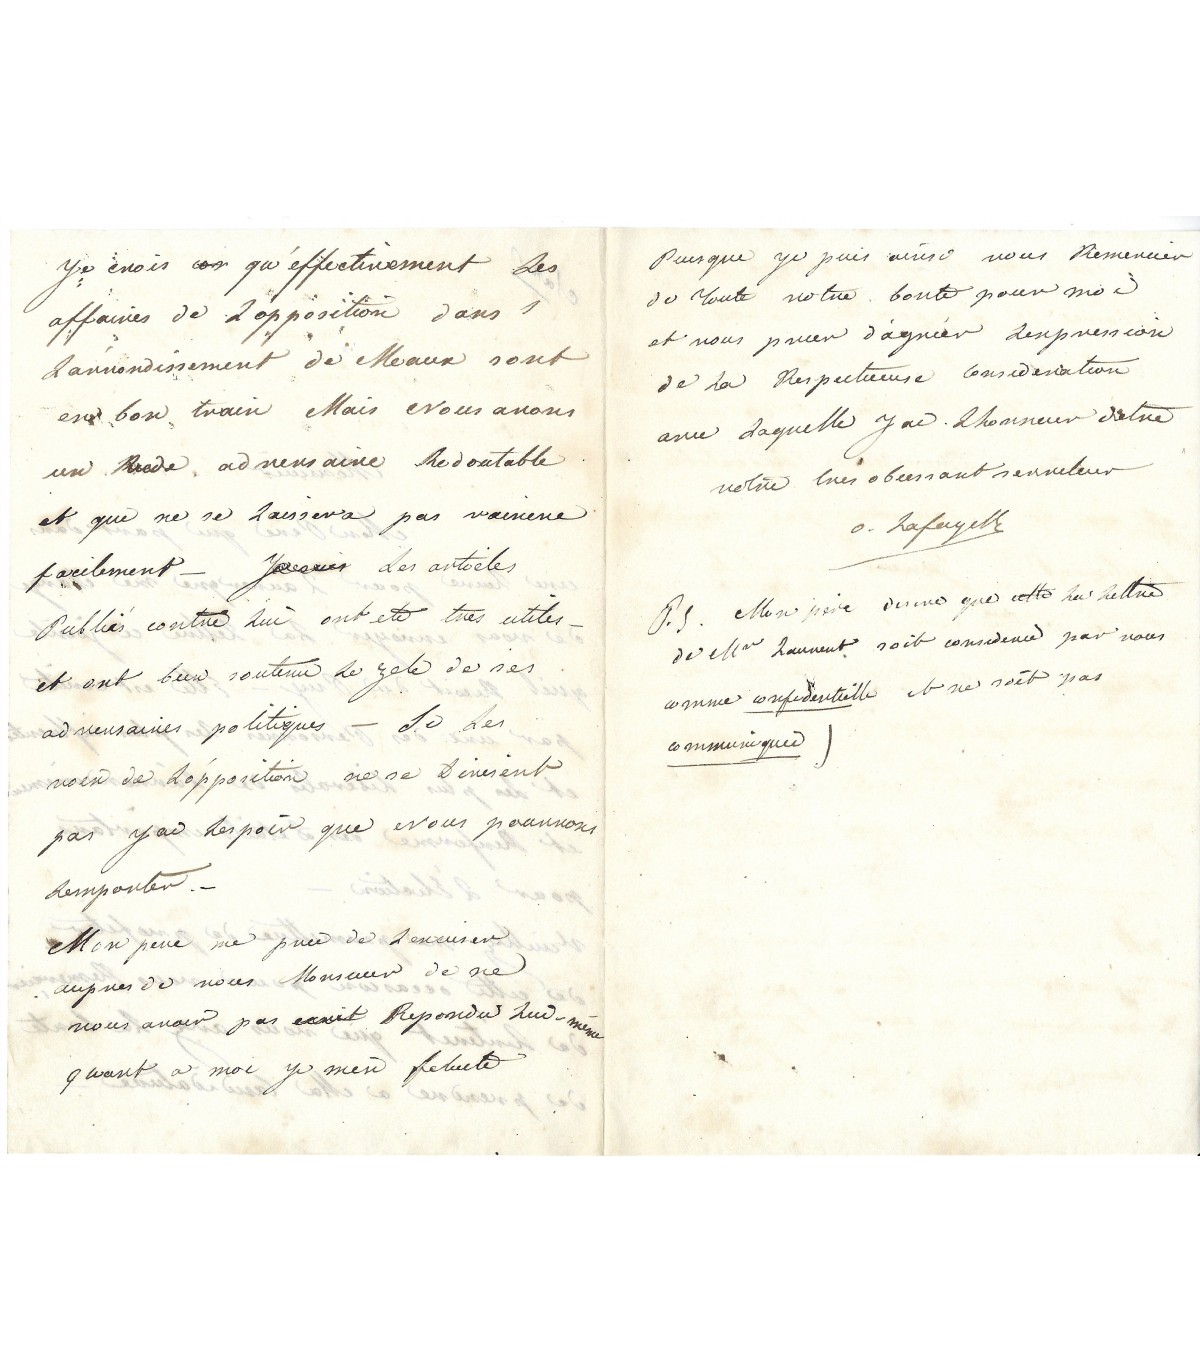 Je crois qu'effectivement les
affaires de l'opposition dans
l'arrondissement de Meaux sont
en bon train Mais Nous avons
un adversaire Redoutable
et que ne se laissera pas vaincre
facilement — Les articles
Publiés contre lui ont eté tres utiles —
et ont bien soutenu le zele de ses
adversaires politiques — Si les
voix de l'opposition ne se divisent
pas j'ai lespoir que Nous pourrons
lemporter. —
Mon pere me prie de lexcuser
aupres de vous Monsieur de ne
vous avoir pas ecrit Repondu lui-même
quant a moi je m'en felicite
Puisque je puis ainsi vous Remercier
de toute votre bonté pour moi
et vous prier d'agréer lexpression
de la Respectueuse Consideration
avec laquelle j'ai lhonneur d'etre
votre tres obeissant serviteur
o. Lafayette
P.S. Mon père desire que cette la lettre
de Mr Laurent soit considerée par vous
comme confidentielle et ne soit pas
communiquée